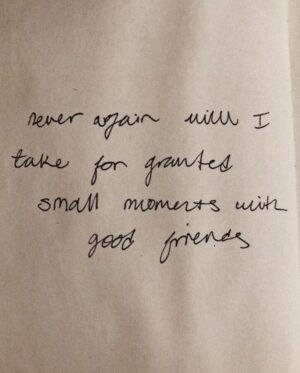 never again will I
take for granted
small moments with
good friends